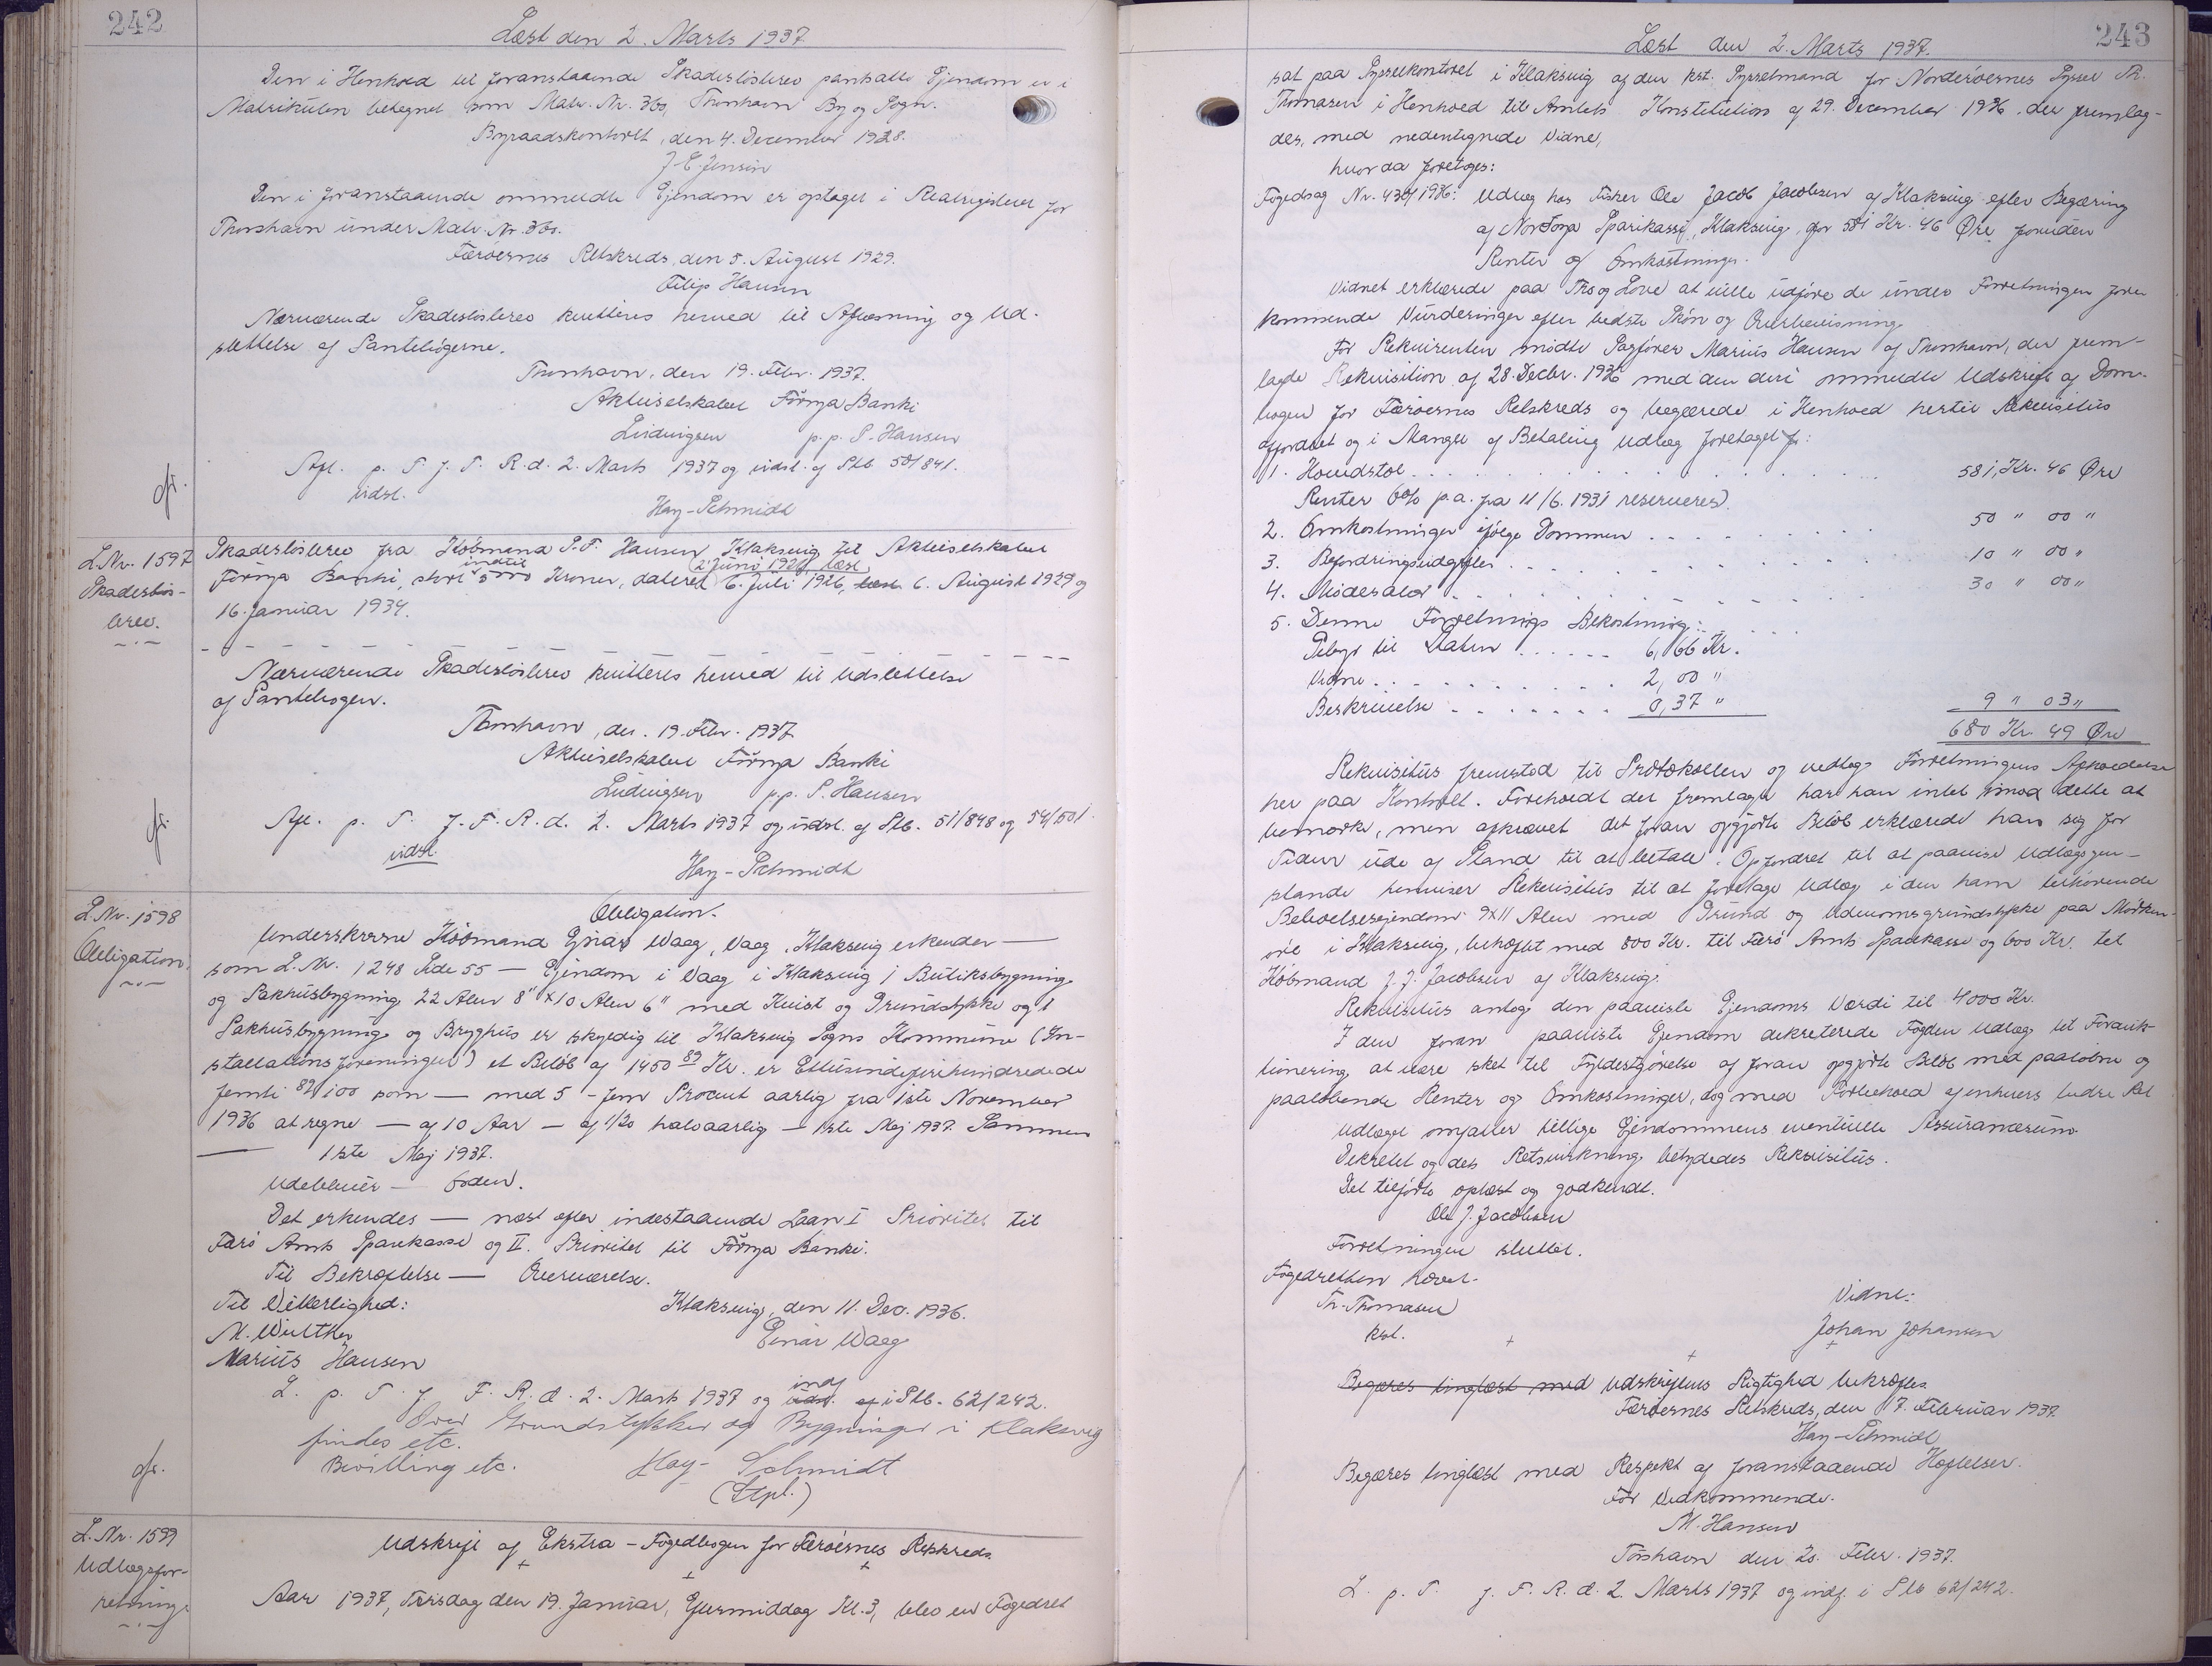 242
Læst den 2. Marts 1937
Den i Henhold til foranstaaende Skadesløsbrev pantsatte Ejendom er i
Matrikulen betegnet som Matr. Nr. 360, Thorshavn By og Sogn.
Byraadskontoret, den 4. December 1928.
J. E. Jensen
Den i foranstaaende ommeldte Ejendom er optaget i Realregisteret for
Thorshavn under Matr. Nr. 360.
Færøernes Retskreds, den 5. August 1929.
Filip Hansen
Nærværende Skadesløsbrev kvitteres herved til Aflæsning og Ud-
slettelse af Pantebøgerne.
Thorshavn, den 19. Febr. 1937.
Aktieselskabet Föroya Banki
Ludvigsen p.p. S. Hansen
Afl. p. T. f. F. R. d. 2. Marts 1937 og udsl. af Ptb. 50/841.
udsl.
Hay-Schmidt
cfr.
L.Nr. 1597
Skadesløs-
brev.
Skadesløsbrev fra Købmand P. F. Hansen, Klaksvig til Aktieselskabet
Föroya Banki, stort indtil 5000 Kroner, dateret 6. Juli 1926, (2 Juni 1927 læst) læst 6. August 1929 og
16. Januar 1934.
Nærværende Skadesløsbrev kvitteres herved til Udslettelse
af Pantebogen.
Thorshavn, den 19. Febr. 1937.
Aktieselskabet Föroya Banki
Ludvigsen p.p. S. Hansen
Afl. p. T. f. F. R. d. 2. Marts 1937 og udsl. af Ptb. 51/848 og 54/501.
udsl.
Hay-Schmidt
cfr.
L.Nr. 1598
Obligation.
Obligation.
Underskrevne Købmand Ejnar Waag, Vaag, Klaksvig erkender —
som L. Nr. 1248 Side 55 — Ejendom i Vaag i Klaksvig 1 Butiksbygning
og Pakhusbygning 22 Alen 8" x 10 Alen 6" med Kvist og Grundstykke og 1
Pakhusbygning og Bryghus er skyldig til Klaksvig Sogns Kommune (In-
stallationsforeningen) et Beløb af 1450 89 Kr. er Ettusindefirehundredede
femti 89/100 som — med 5 - fem Procent aarlig fra 1ste November
1936 at regne — af 10 Aar — af 1/20 halvaarlig — 1ste Maj 1937. Sammen
— 1ste Maj 1937.
Udebliver — Orden.
Det erkendes — næst efter indestaaende Laan I Prioritet til
Færø Amts Sparekasse og II. Prioritet til Föroya Banki.
Til Bekræftelse — Overværelse.
Til Vitterlighed:
Klaksvig, den 11. Dec. 1936.
M. Winther
Einar Waag
Marius Hansen
L. p. T. f. F. R. d. 2. Marts 1937 og udsl. indf. af i Ptb. 62/242.
Over Grundstykker og Bygninger i Klaksvig
findes etc.
Bevilling etc. Hay-Schmidt
(Stpl.)
cfr.
L. Nr. 1599
Udlægsfor-
retning
Udskrift af Ekstra-Fogedbogen for Færøernes Retskreds.
Aar 1937, Tirsdag den 19. Januar, Eftermiddag Kl. 3, blev en Fogedret
243
Læst den 2. Marts 1937.
sat paa Sysselkontoret i Klaksvig af den kst. Sysselmand for Norderøernes Syssel Th.
Thomasen i Henhold til Amtets Konstitution af 29. December 1936, der fremlag-
des, med nedentegnede Vidne,
hvor da foretoges:
Fogedsag Nr. 430/1936: Udlæg hos Fisker Ole Jacob Jacobsen af Klaksvig efter Begæring
af Nordoya Sparikassi, Klaksvig, for 581 Kr. 46 Øre foruden
Renter og Omkostninger.
Vidnet erklærede paa Tro og Love at ville udføre de under Forretningen fore-
kommende Vurderinger efter bedste Skøn og Overbevisning.
For Rekvirenten mødte Sagfører Marius Hansen af Thorshavn, der frem-
lagde Rekvisition af 28. Decbr. 1936 med den deri ommeldte Udskrift af Dom-
bogen for Færøernes Retskreds og begærede i Henhold hertil Rekvisitus
affordret og i Mangel af Betaling Udlæg foretaget for:
1. Hovedstol . . . . . 581, Kr. 46 Øre
Renter 6% p.a. fra 11/6. 1931 reserveres)
2. Omkostninger ifølge Dommen . . . . 50 " 00 "
3. Befordringsudgifter . . . . 10 " 00 "
4. Mødesalær . . . . 30 " 00 "
5. Denne Forretnings Bekostning: . . .
Gebyr til Staten . . . . . 6,66 Kr.
Vidne . . . . . . 2,00 "
Beskrivelse . . . . . 0,37 " 9 " 03 "
680 Kr. 49 Øre
Rekvisitus fremstod til Protokollen og vedtog Forretningens Afholdelse
her paa Kontoret. Foreholdt det fremlagte har han intet imod dette at
bemærke, men afkrævet det foran opgjorte Beløb erklærede han sig for
Tiden ude af Stand til at betale. Opfordret til at paavise Udlægsgen-
stande henviser Rekvisitus til at foretage Udlæg i den ham tilhørende
Beboelsesejendom 9x11 Alen med Grund og Udenomsgrundstykke paa Mørken-
øre i Klaksvig, behæftet med 800 Kr. til Færø Amts Sparekasse og 600 Kr. til
Købmand J. J. Jacobsen af Klaksvig.
Rekvisitus antog den paaviste Ejendoms Værdi til 4000 Kr.
I den foran paaviste Ejendom dekreterede Fogden Udlæg til Foranstal-
tionering at være sket til Fyldestgørelse af foran opgjorte Beløb med paaløbne og
paaløbende Renter og Omkostninger, dog med Forbehold af enhvers bedre Ret
Udlæget omfatter tillige Ejendommens eventuelle Assurancesum.
Dekretet og dets Retsvirkning betydedes Rekvisitus.
Det tilførte oplæst og godkendt.
Ole J. Jacobsen
Forretningen sluttet.
Fogedretten hævet.
Th. Thomasen
kst.
Vidne:
Johan Johansen
Begæres tinglæst med Udskriftens Rigtighed bekræftes.
Færøernes Retskreds, den 17. Februar 1937.
Hay-Schmidt
Begæres tinglæst med Respekt af foranstaaende Hæftelser.
For Vedkommende.
M. Hansen
Torshavn den 20. Febr. 1937.
L. p. T. f. F. R. d. 2. Marts 1937 og indf. i Ptb 62/242.